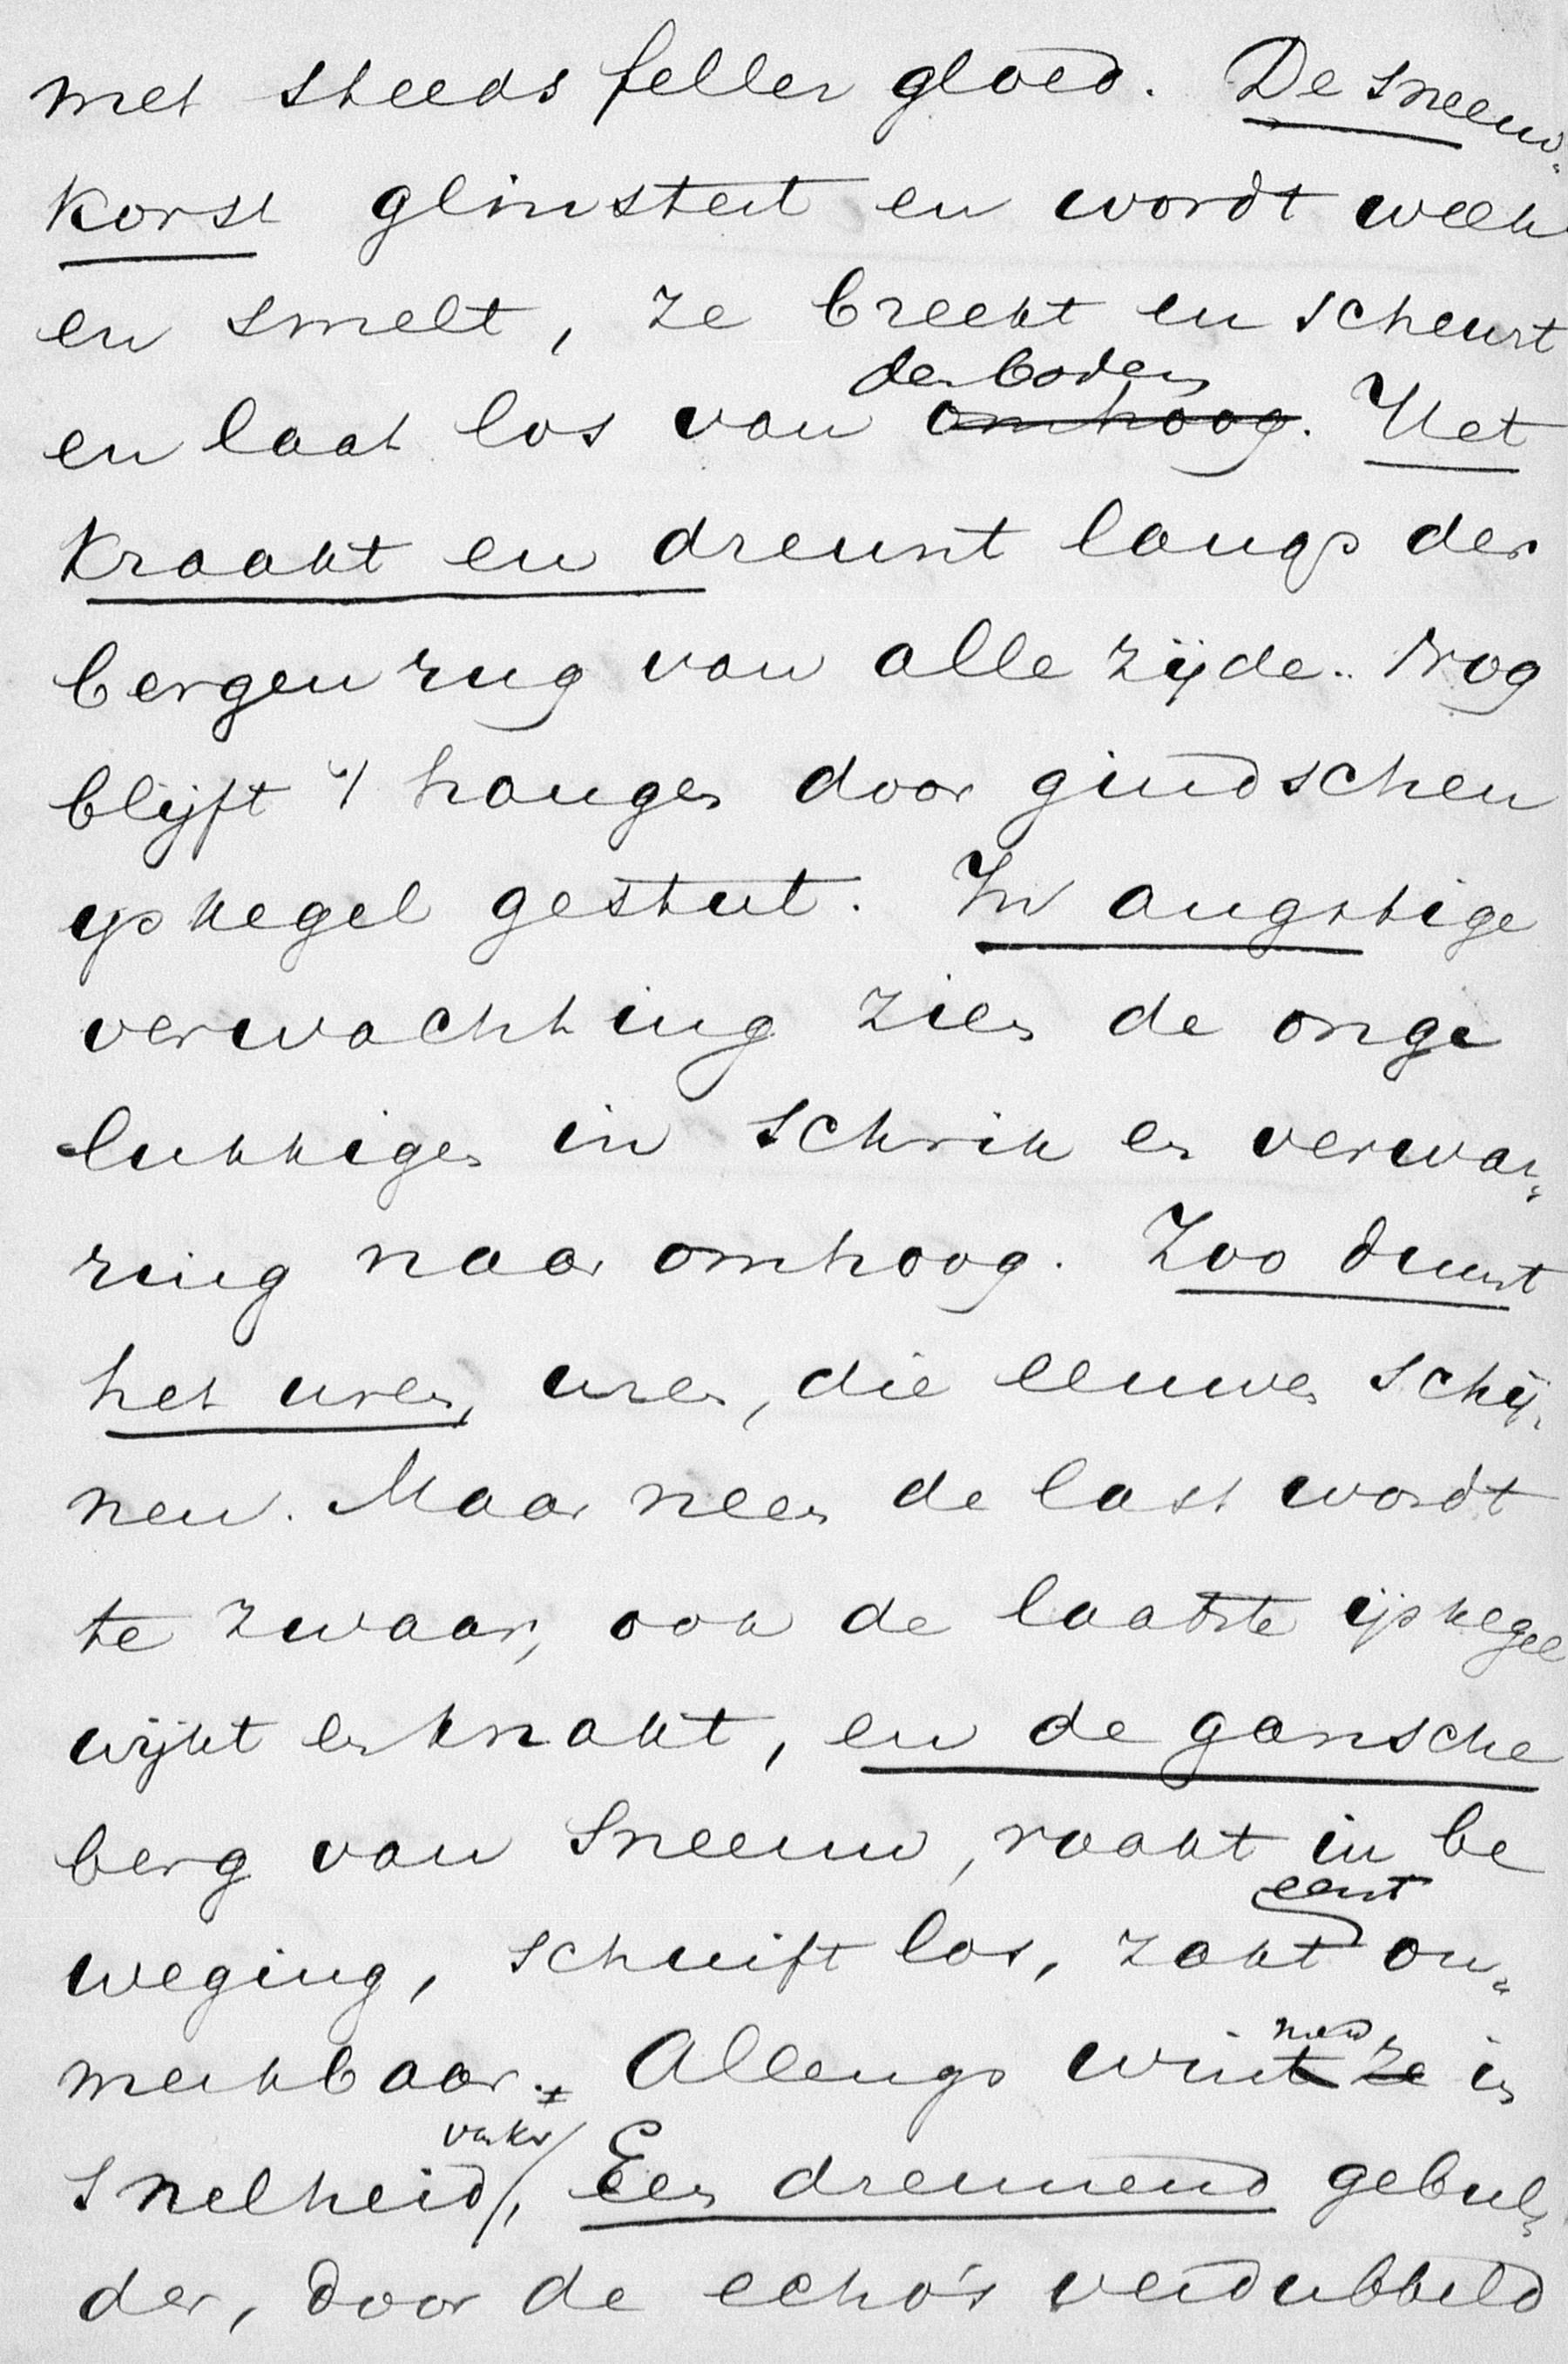 met steeds feller gloed. De sneeuw-
korst glinstert en wordt week
en smelt, ze breekt en scheurt
den bodem
en laat los van omhoog. Het
kraakt en dreunt langs den
bergenrug van alle zijde. Nog
blijft 't hangen door gindschen
ijskegel gestut. In angstige
verwachting zien de onge
lukkigen in schrik en verwar-
ring naar omhoog. Zoo duurt
het uren, uren, die eeuwen schij-
nen. Maar neen de last wordt
te zwaar, ook de laatste ijskegel
wijkt en knakt, en de gansche
berg van sneeuw, raakt in be
eerst
weging, schuift los, zakt on-
merkbaar. Allengs wint ze in
snelheid, Een dreunend gebul-
der, door de echo's verdubbeld